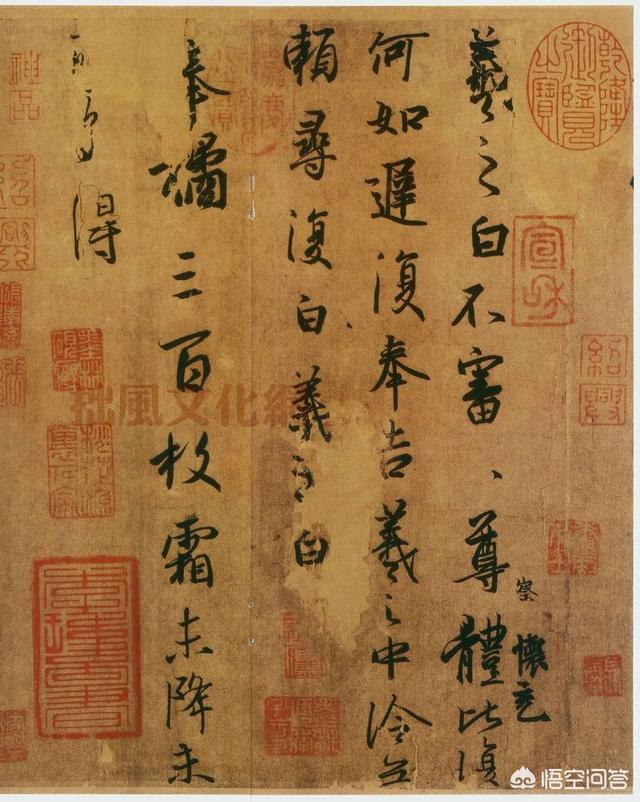 羲之白不審、尊體比復
察
懷充
何如遲復奉告羲之中冷無
賴尋復白羲之白
奉橘三百枚霜未降未
可多得
乾隆御覽之寶
宣和
紹興
神品
拙風文化網
悟空问答